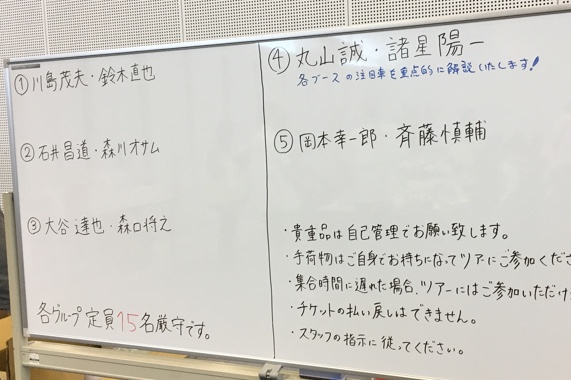 ①川島茂夫・鈴木直也
②石井昌道・森川オサム
③大谷達也・森口将之
各グループ定員15名厳守です。
④丸山誠・諸星陽一
各ブースの注目車を重点的に解説いたします!
⑤岡本幸一郎・斉藤慎輔
・貴重品は自己管理でお願い致します。
・手荷物はご自身でお持ちになってツアーにご参加くださ
・集合時間に遅れた場合、ツアーにはご参加いただけ
・チケットの払い戻しはできません。
・スタッフの指示に従ってください。